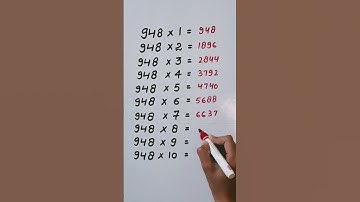 948 x 1 = 948
948 x 2 = 1896
948 x 3 = 2844
948 x 4 = 3792
948 x 5 = 4740
948 x 6 = 5688
948 x 7 = 6637
948 x 8 =
948 x 9 =
948 x 10 =